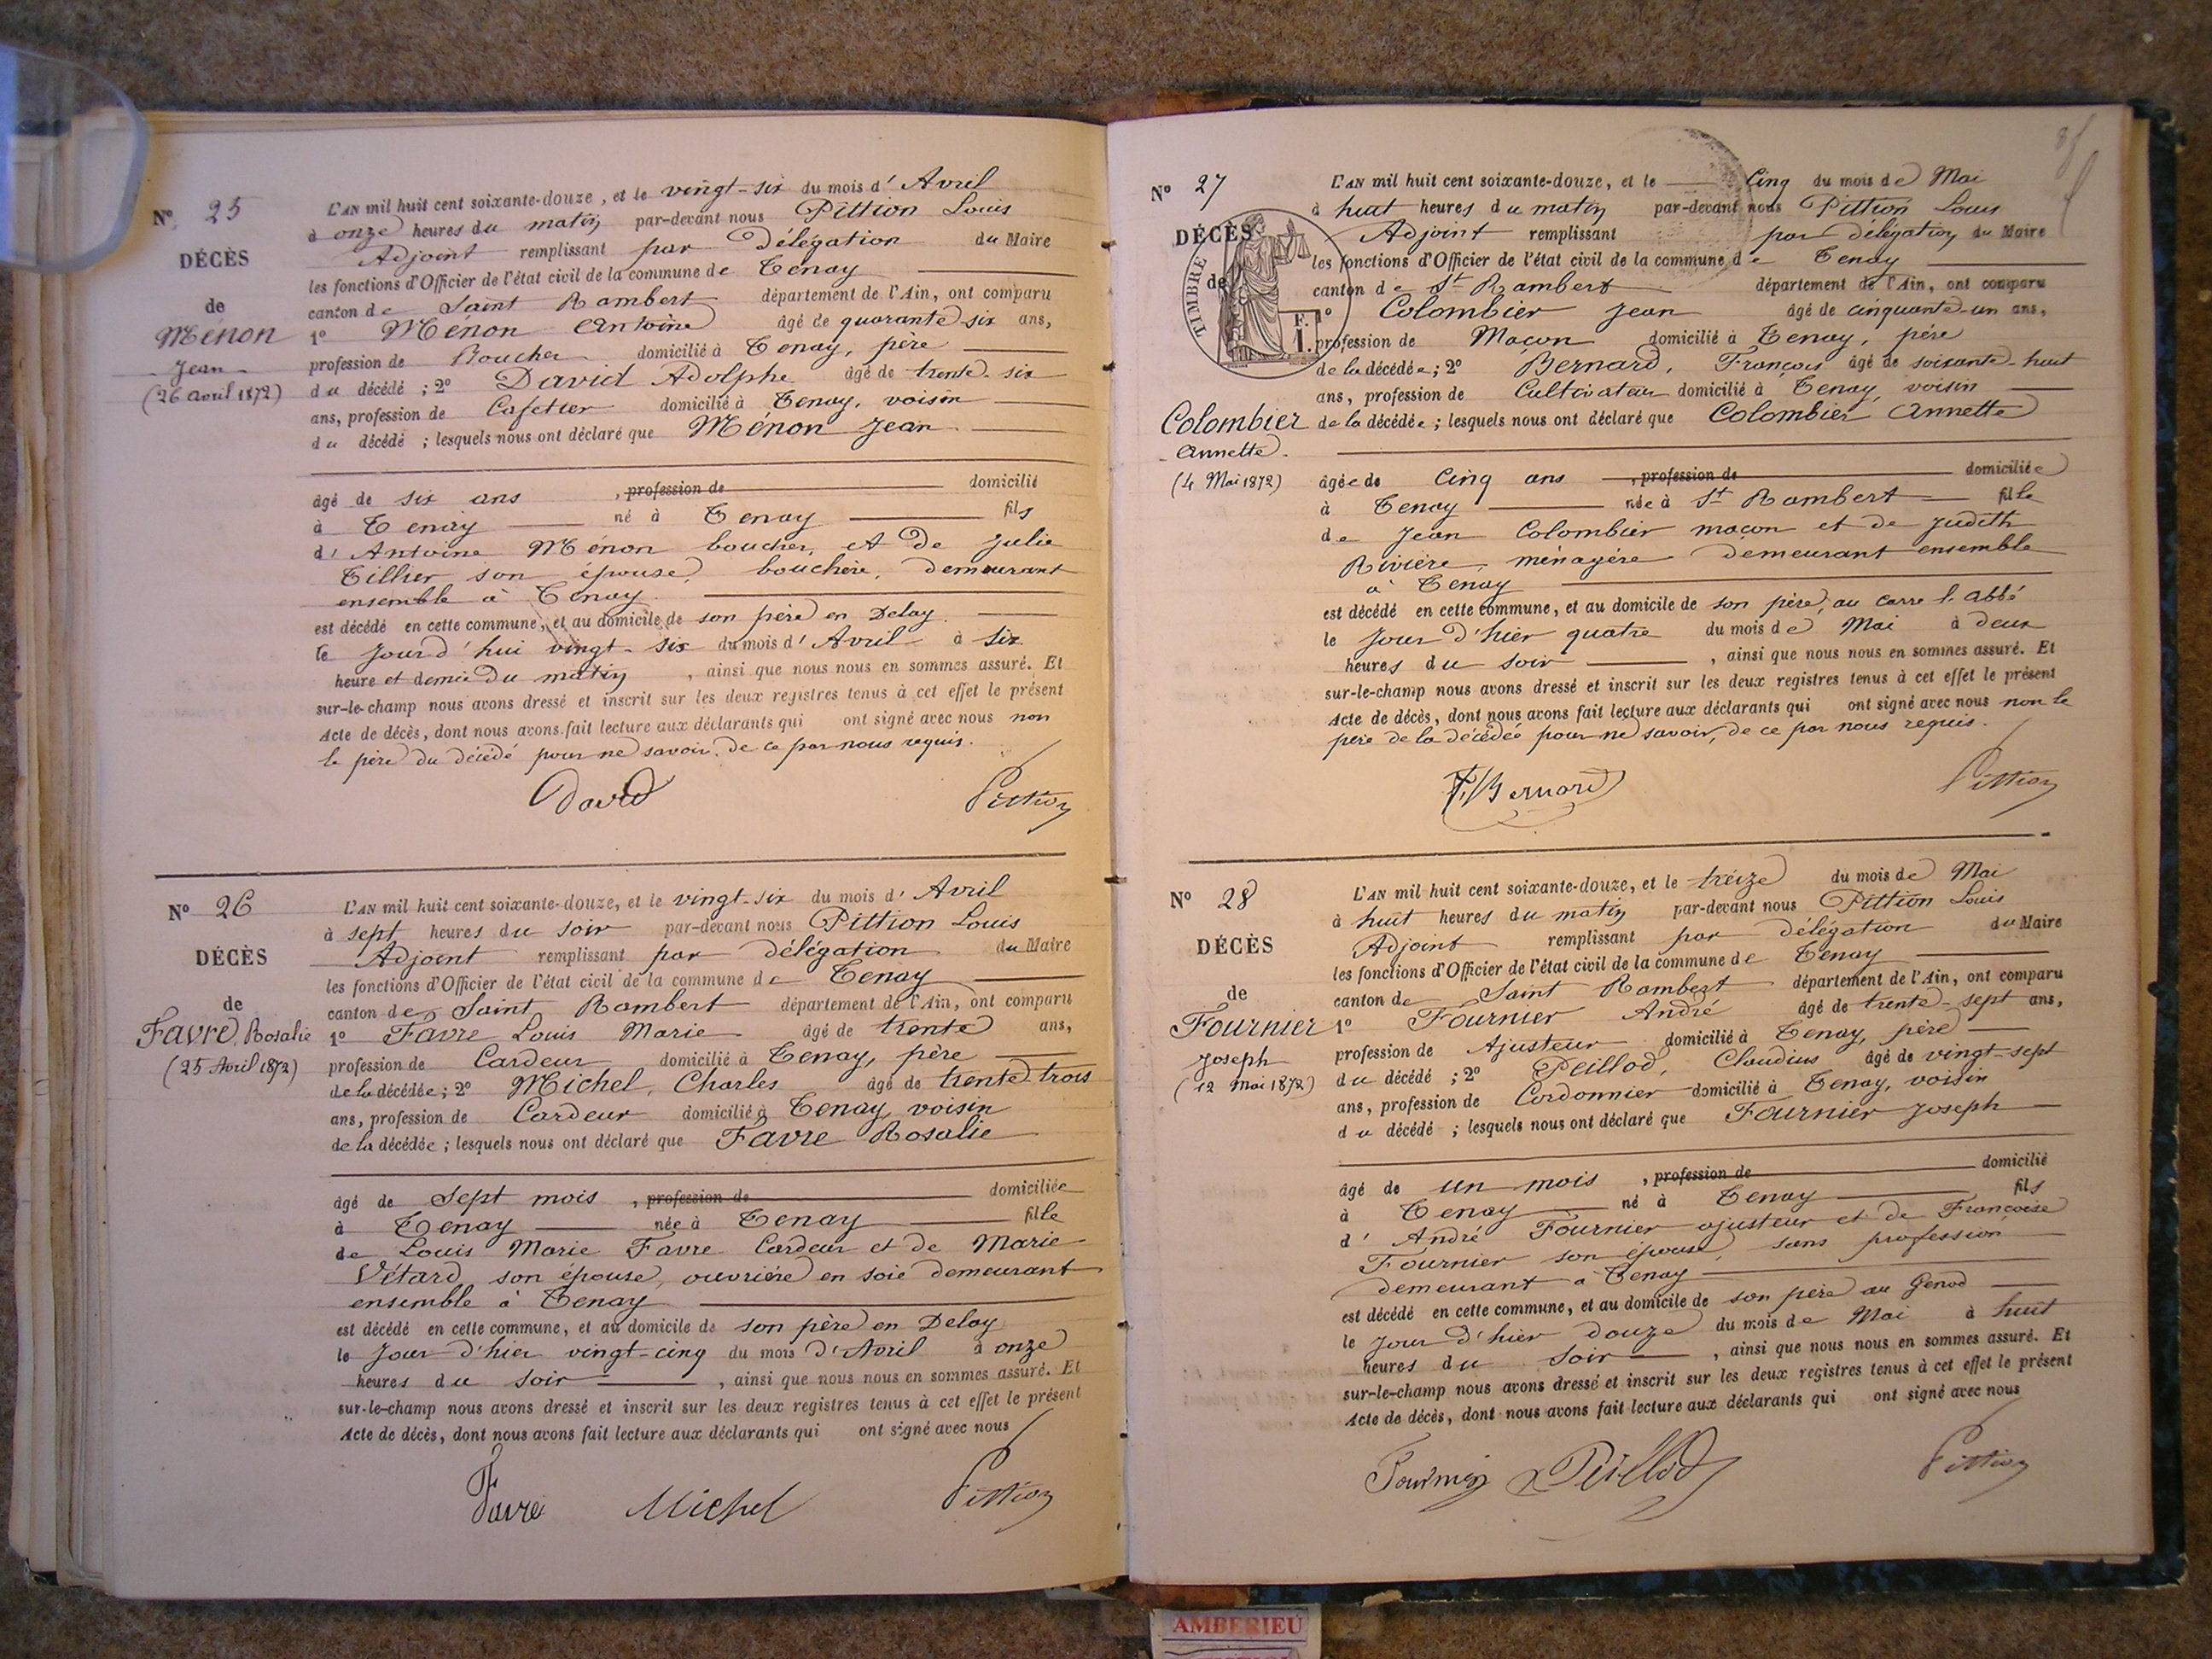 N° 25
DÉCÈS
de
Ménon
Jean
(26 avril 1872)
L'AN mil huit cent soixante-douze, et le vingt-six du mois d'Avril
à onze heures du matin par-devant nous Pittion Louis
Adjoint remplissant par Délégation du Maire
les fonctions d'Officier de l'état civil de la commune de Tenay
canton de Saint Rambert département de l'Ain, ont comparu
1° Ménon Antoine âgé de quarante-six ans,
profession de Boucher domicilié à Tenay, père
du décédé ; 2° David Adolphe âgé de trente-six
ans, profession de Cafetier domicilié à Tenay, voisin
du décédé ; lesquels nous ont déclaré que Ménon Jean
âgé de six ans , profession de domicilié
à Tenay né à Tenay fils
d'Antoine Ménon boucher, et de Julie
Tillier son épouse, bouchère, demeurant
ensemble à Tenay
est décédé en cette commune, et au domicile de son père en Delay
le jourd'hui vingt-six du mois d'Avril à six
heure et demie du matin , ainsi que nous nous en sommes assuré. Et
sur-le-champ nous avons dressé et inscrit sur les deux registres tenus à cet effet le présent
Acte de décès, dont nous avons fait lecture aux déclarants qui ont signé avec nous non
le père du décédé pour ne savoir, de ce par nous requis.
David Pittion
N° 26
DÉCÈS
de
Favre, Rosalie
(25 Avril 1872)
L'AN mil huit cent soixante-douze, et le vingt-six du mois d'Avril
à sept heures du soir par-devant nous Pittion Louis
Adjoint remplissant par délégation du Maire
les fonctions d'Officier de l'état civil de la commune de Tenay
canton de Saint Rambert département de l'Ain, ont comparu
1° Favre Louis Marie âgé de trente ans,
profession de Cardeur domicilié à Tenay, père
de la décédée ; 2° Michel, Charles âgé de trente-trois
ans, profession de Cardeur domicilié à Tenay, voisin
de la décédée ; lesquels nous ont déclaré que Favre Rosalie
âgé de Sept mois , profession de domiciliée
à Tenay née à Tenay fille
de Louis Marie Favre Cardeur et de Marie
Vétard, son épouse, ouvrière en soie demeurant
ensemble à Tenay
est décédé en cette commune, et au domicile de son père en Delay
le jour d'hier vingt-cinq du mois d'Avril à onze
heures du soir , ainsi que nous nous en sommes assuré. Et
sur-le-champ nous avons dressé et inscrit sur les deux registres tenus à cet effet le présent
Acte de décès, dont nous avons fait lecture aux déclarants qui ont signé avec nous
Favre Michel Pittion
N° 27
DÉCÈS
de
TIMBRE
F.
1.
Colombier
Annette.
(4 Mai 1872)
L'AN mil huit cent soixante-douze, et le Cinq du mois de Mai
à huit heures du matin par-devant nous Pittion Louis
Adjoint remplissant par délégation du Maire
les fonctions d'Officier de l'état civil de la commune de Tenay
canton de St Rambert département de l'Ain, ont comparu
1° Colombier Jean âgé de cinquante-un ans,
profession de Maçon domicilié à Tenay, père
de la décédée ; 2° Bernard, François âgé de soixante-huit
ans, profession de Cultivateur domicilié à Tenay, voisin
de la décédée ; lesquels nous ont déclaré que Colombier Annette
âgée de Cinq ans , profession de domiciliée
à Tenay née à St Rambert fille
de Jean Colombier maçon et de Judith
Rivière, ménagère demeurant ensemble
à Tenay
est décédé en cette commune, et au domicile de son père, au Carre l'Abbé
le Jour d'hier quatre du mois de Mai à deux
heures du soir , ainsi que nous nous en sommes assuré. Et
sur-le-champ nous avons dressé et inscrit sur les deux registres tenus à cet effet le présent
Acte de décès, dont nous avons fait lecture aux déclarants qui ont signé avec nous non le
père de la décédée pour ne savoir, de ce par nous requis.
F. Bernard Pittion
N° 28
DÉCÈS
de
Fournier
Joseph
(12 Mai 1872)
L'AN mil huit cent soixante-douze, et le treize du mois de Mai
à huit heures du matin par-devant nous Pittion Louis
Adjoint remplissant par délégation du Maire
les fonctions d'Officier de l'état civil de la commune de Tenay
canton de Saint Rambert département de l'Ain, ont comparu
1° Fournier André âgé de trente-sept ans,
profession de Ajusteur domicilié à Tenay, père
du décédé ; 2° Peillod, Claudius âgé de vingt-sept
ans, profession de Cordonnier domicilié à Tenay, voisin
du décédé ; lesquels nous ont déclaré que Fournier Joseph
âgé de un mois , profession de domicilié
à Tenay né à Tenay fils
d'André Fournier ajusteur et de Françoise
Fournier son épouse, sans profession
demeurant à Tenay
est décédé en cette commune, et au domicile de son père au Genod
le Jour d'hier douze du mois de Mai à huit
heures du soir , ainsi que nous nous en sommes assuré. Et
sur-le-champ nous avons dressé et inscrit sur les deux registres tenus à cet effet le présent
Acte de décès, dont nous avons fait lecture aux déclarants qui ont signé avec nous
Fournier Peillod Pittion
AMBERIEU